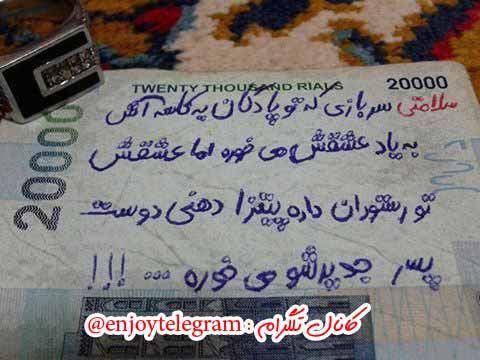 TWENTY THOUSAND RIALS 20000
20000
سلامتی سربازی که تو پادگان یه کاسه آش
به یاد عشقش می خوره اما عشقش
تو رستوران داره پیتزا دهنی دوست
پسر جدیدشو می خوره ... !!!
کانال تلگرام : @enjoytelegram